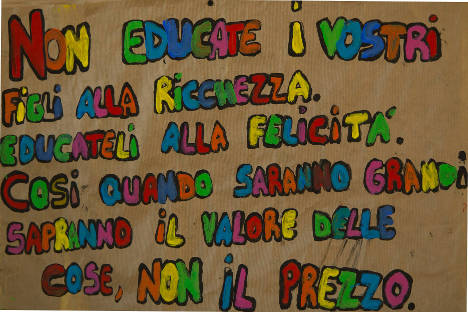 NON EDUCATE i VOSTRi
FiGLi ALLA RiCCHEZZA.
EDUCATELi ALLA FELiCiTA'.
COSi QUANDO SARANNO GRANDi
SAPRANNO iL VALORE DELLE
COSE, NON iL PREZZO.